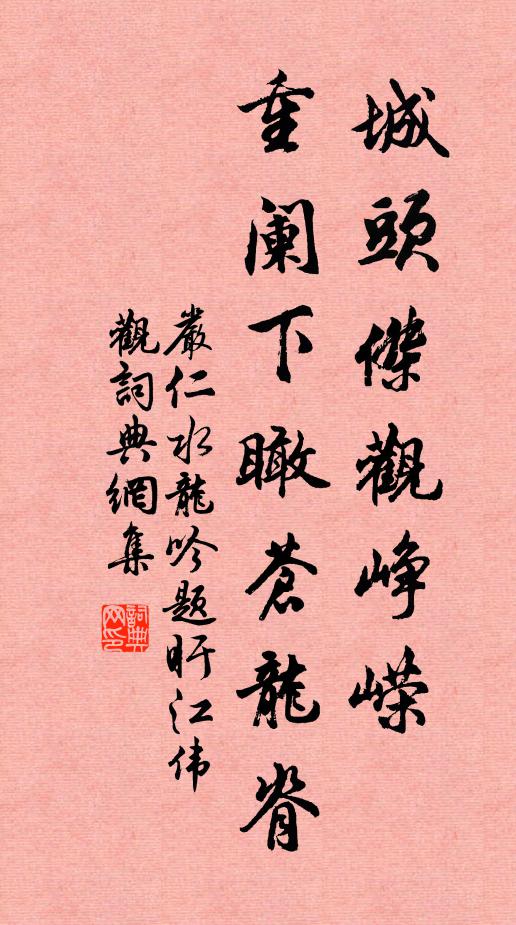 城頭傑觀崢嶸
重阑下瞰蒼龍脊
嚴仁水龍吟题盱江伟
觀詞典網集
詞典网印